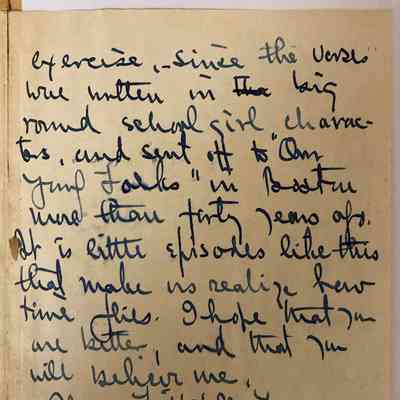 exercise, – since the verses
were written in the big
round school girl charac-
ters, and sent off to "Our
Young Folks" in Boston
more than forty years ago.
It is little episodes like this
that make us realize how
time flies. I hope that you
are better, and that you
will believe me,